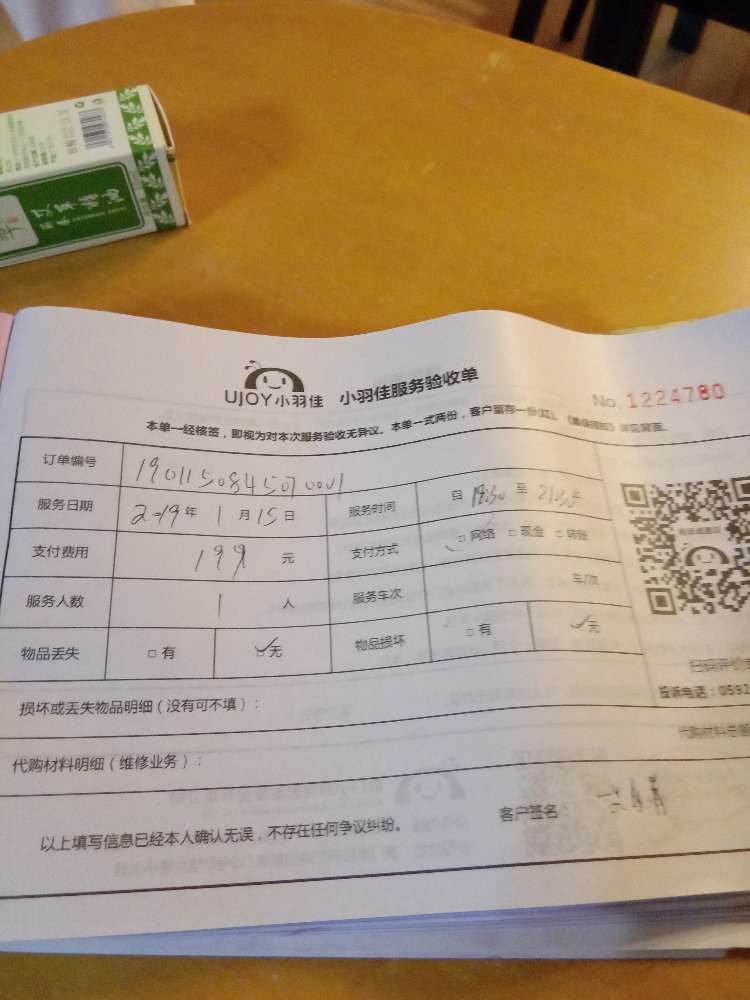 UJOY小羽佳 小羽佳服务验收单
No. 1224780
本单一经核签，即视为对本次服务验收无异议。本单一式两份，客户留存一份(红)。
订单编号 1901150845070001
服务日期 2019年 1月 15日 服务时间 自 19:30 至
支付费用 199 元 支付方式 □网络 □现金 □转账
服务人数 1 人 服务车次 车/次
物品丢失 □有 ☑无 物品损坏 □有 ☑无
损坏或丢失物品明细（没有可不填）：
代购材料明细（维修业务）：
以上填写信息已经本人确认无误，不存在任何争议纠纷。 客户签名：
扫码评价
投诉电话：0592
代购材料总